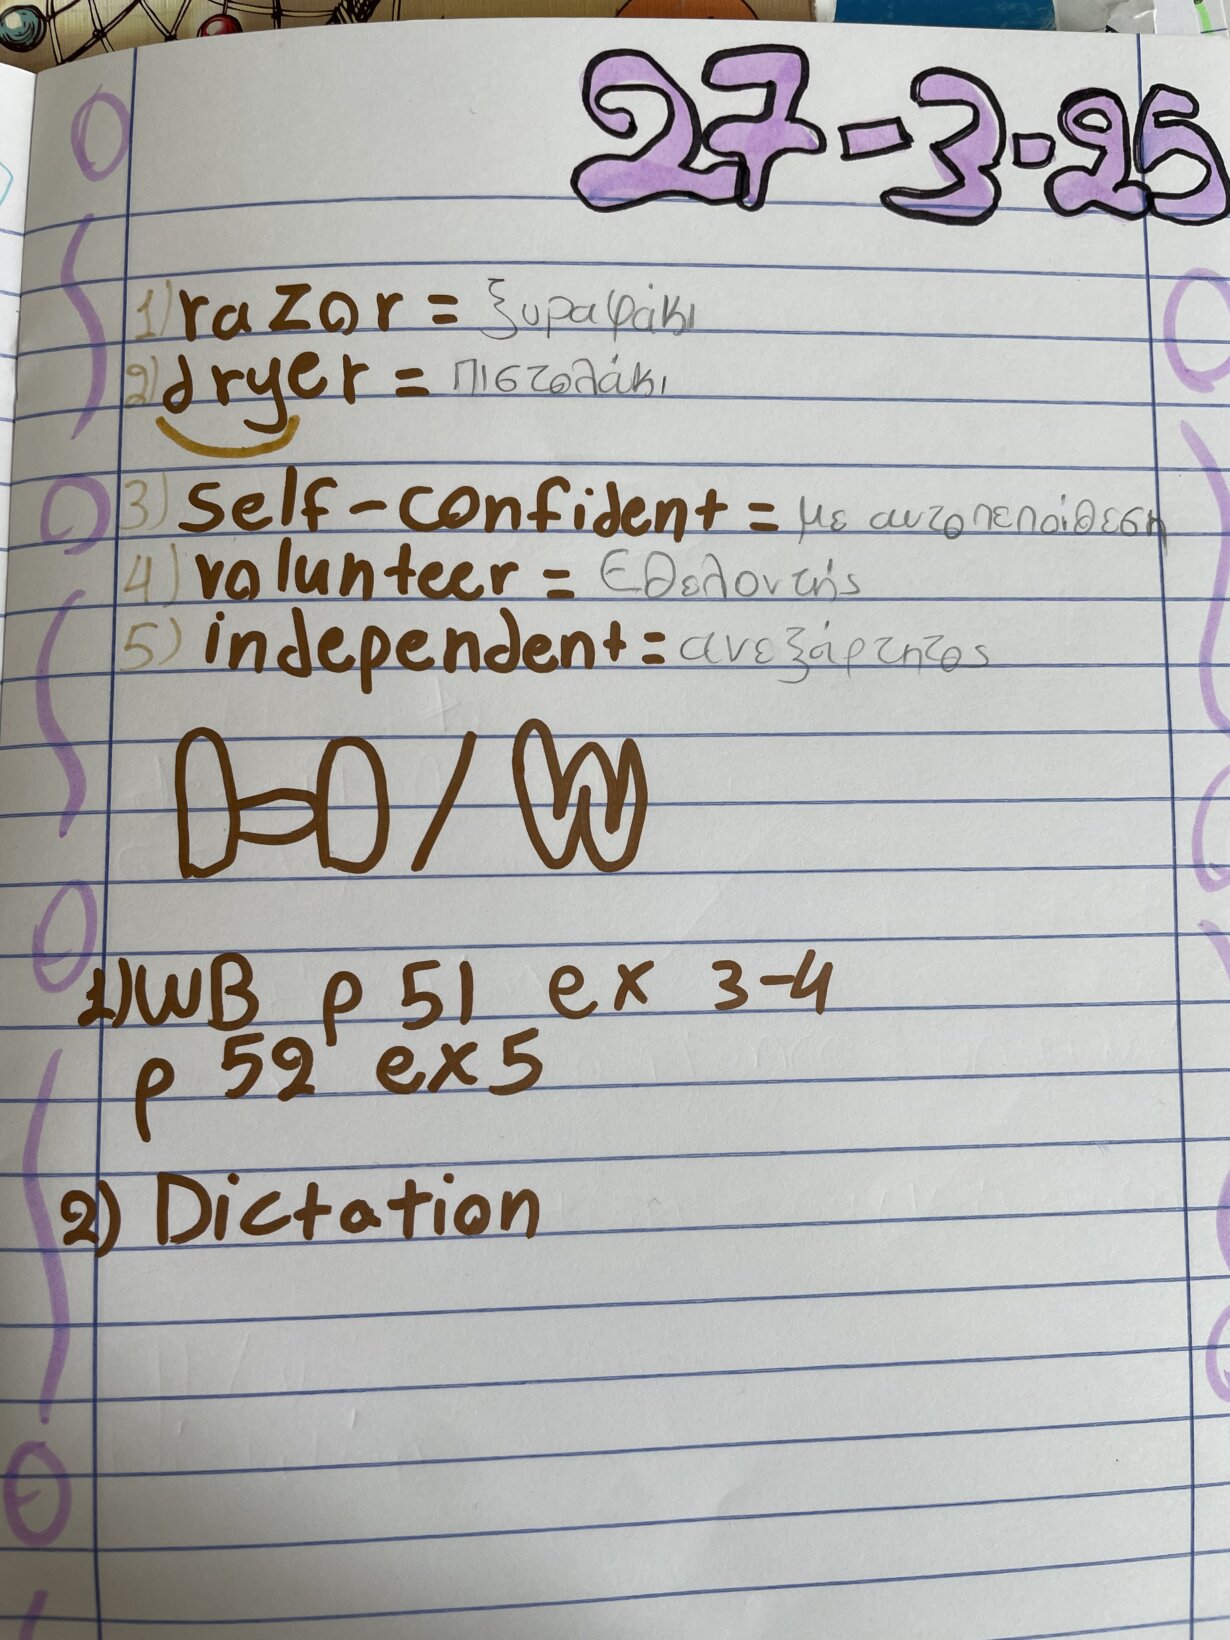 27-3-25
1) razor = ξυραφάκι
2) dryer = πιστολάκι
3) self-confident = με αυτοπεποίθεση
4) volunteer = Εθελοντής
5) independent = ανεξάρτητος
H/W
1) WB p 51 ex 3-4
p 52 ex 5
2) Dictation